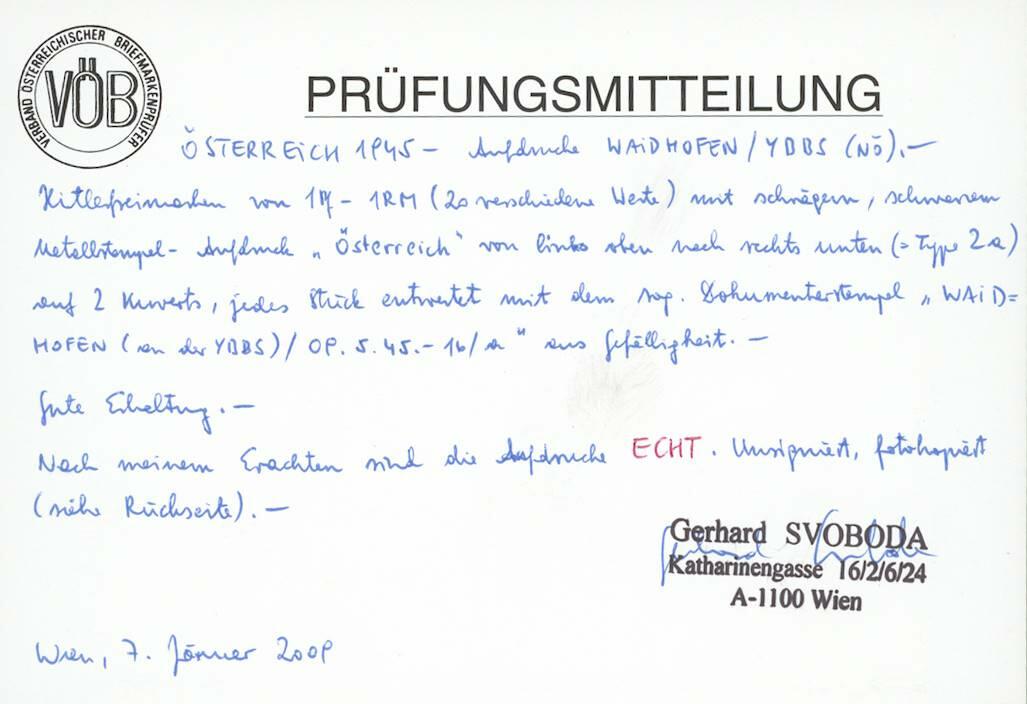 VERBAND ÖSTERREICHISCHER BRIEFMARKENPRÜFER
VÖB
PRÜFUNGSMITTEILUNG
ÖSTERREICH 1945 – Aufdrucke WAIDHOFEN / YBBS (NÖ).–
Hitlerfreimarken von 1 Pf – 1RM (20 verschiedene Werte) mit schrägem, schwarzem
Metallstempel-Aufdruck „Österreich“ von links oben nach rechts unten (= Type 2a)
auf 2 Kuverts, jedes Stück entwertet mit dem sog. Dokumenterstempel „WAID=
HOFEN (an der YBBS) / 09. 5. 45.– 16 / a“ aus Gefälligkeit. –
Gute Erhaltung. –
Nach meinem Erachten sind die Aufdrucke ECHT. Unsigniert, fotokopiert
(siehe Rückseite). –
Gerhard SVOBODA
Katharinengasse 16/2/6/24
A-1100 Wien
Wien, 7. Jänner 2009